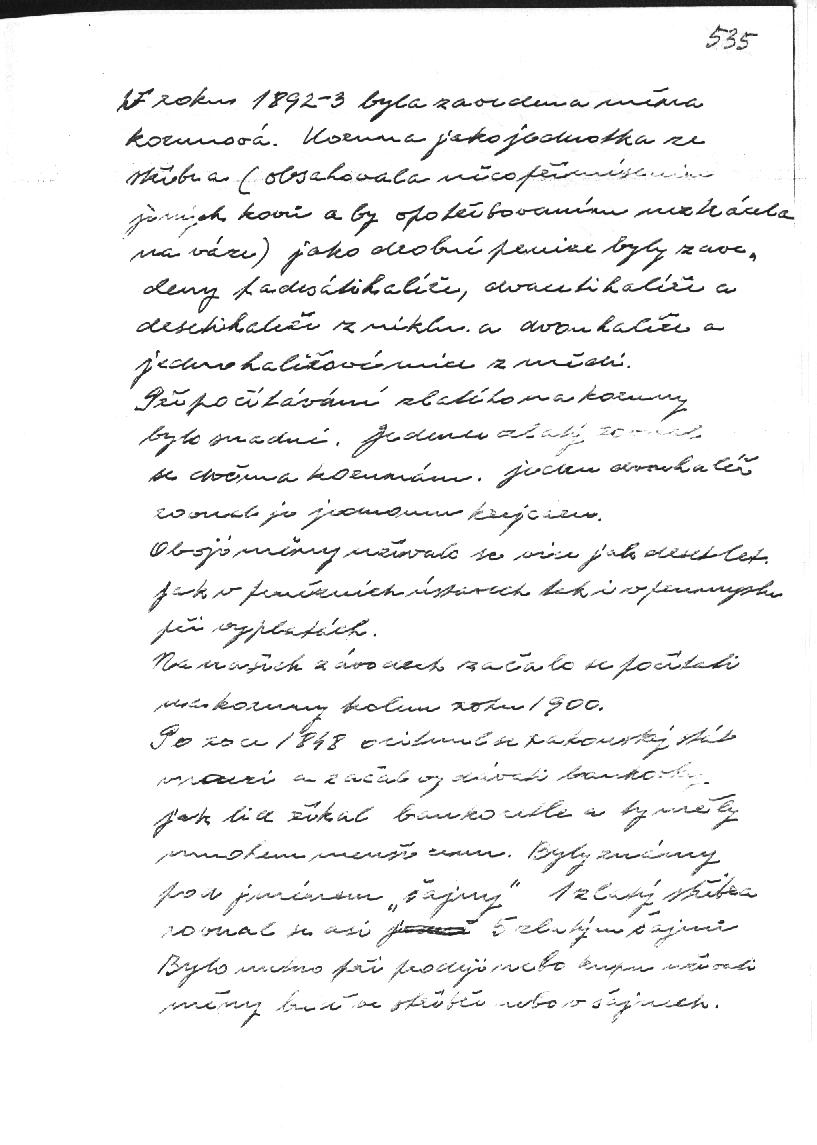 535
V roku 1892-3 byla zavedena měna
korunová. Koruna jako jednotka ze
stříbra (obsahovala něco přimísením
jiných kovů aby opotřebováním neztrácela
na váze) jako drobné peníze byly zave„
deny padesátihalíře, dvacetihalíře a
desetihalíře z niklu a dvouhalíře a
jednohalířové mince z mědi.
Přepočítávání zlatého na koruny
bylo snadné. Jeden zlatý rovnal
se dvěma korunám. jeden dvouhalíř
rovnal je jednomu krejcaru.
Obojí měny užívalo se více jak deset let.
jak v peněžních ústavech tak i v průmyslu
při výplatách.
Na našich závodech začalo se počítati
na koruny kolem roku 1900.
Po roce 1848 ocitnul se rakouský stát
v nouzi a začal vydávati bankovky
jak lid říkal bankocetle a ty měly
mnohem menší cenu. Byly známy
pod jménem „šajny" 1 zlatý stříbra
rovnal se asi 5 zlatým šajnů
Bylo nutno při prodeji nebo kupu užívati
měny buď ve stříbře nebo v šajnech.